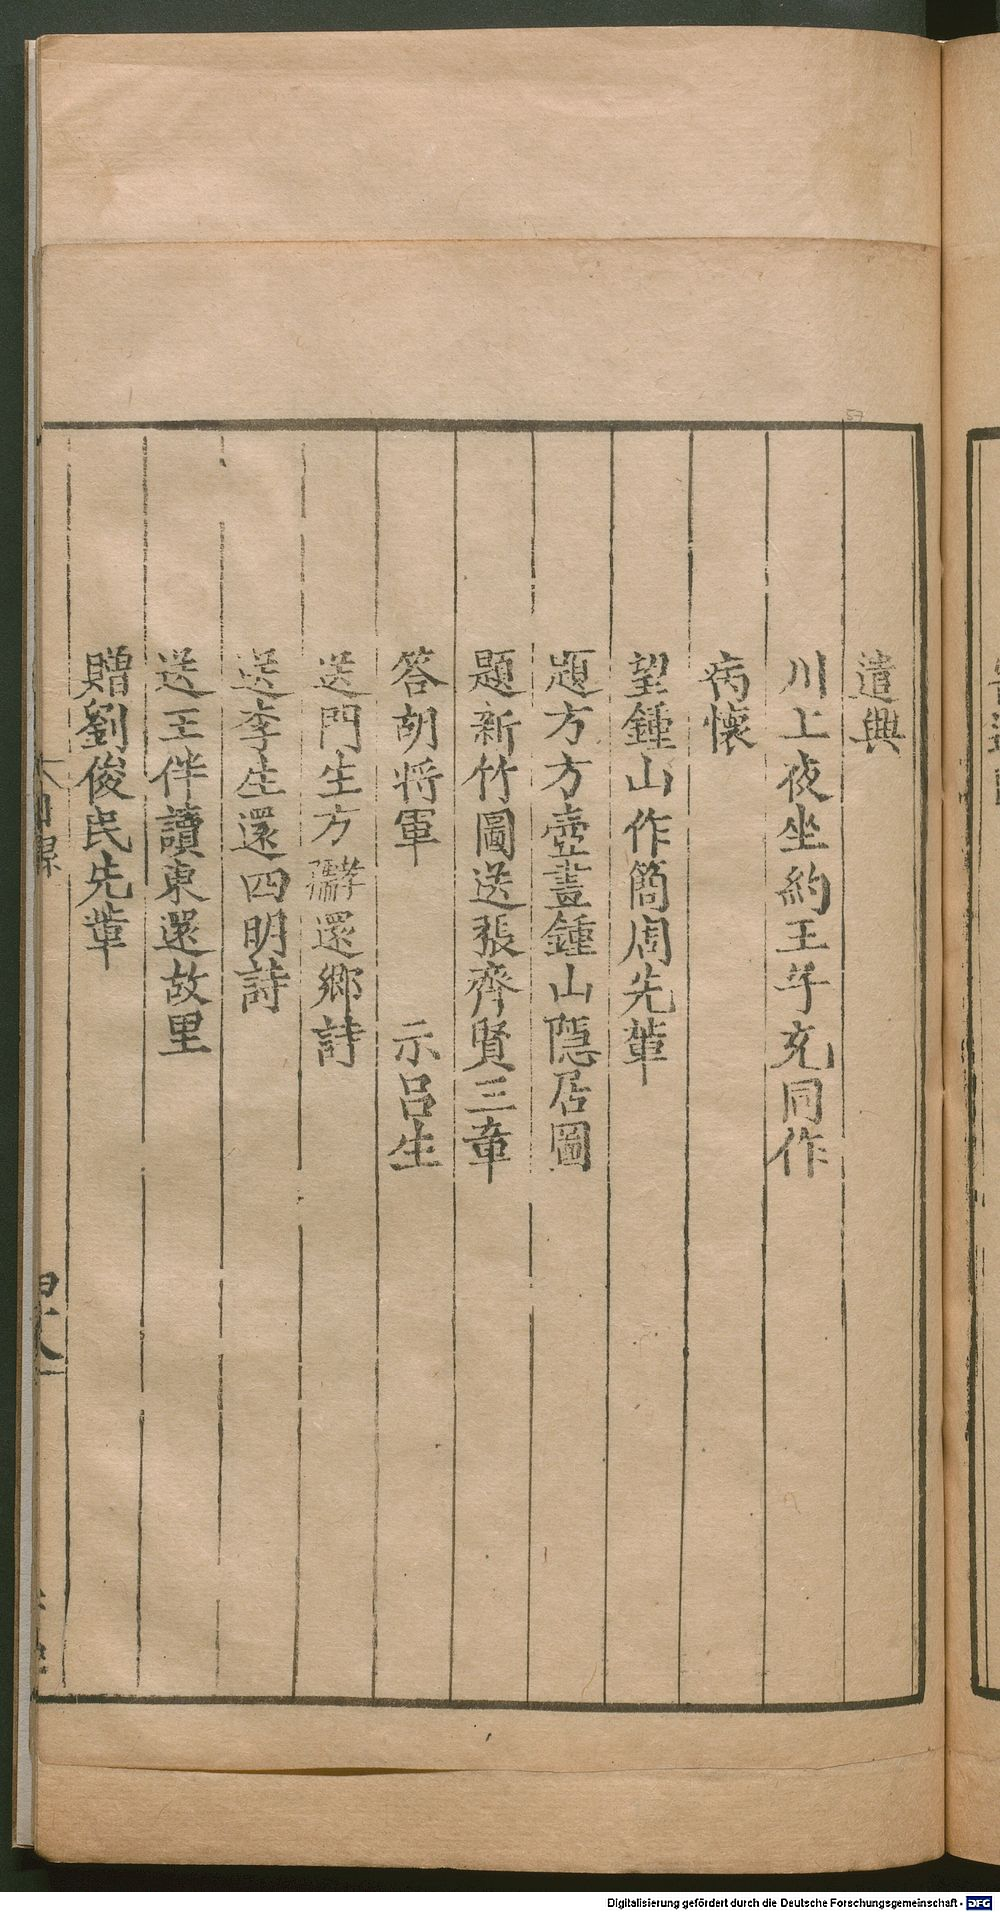 遣興
川上夜坐約王子充同作
病懷
望鍾山作簡周先輩
題方方壺畫鍾山隱居圖
題新竹圖送張齊賢三章
答胡將軍 示呂生
送門生方孝孺還鄉詩
送李生還四明詩
送王伴讀東還故里
贈劉俊民先輩
57
Digitalisierung gefördert durch die Deutsche Forschungsgemeinschaft - DFG